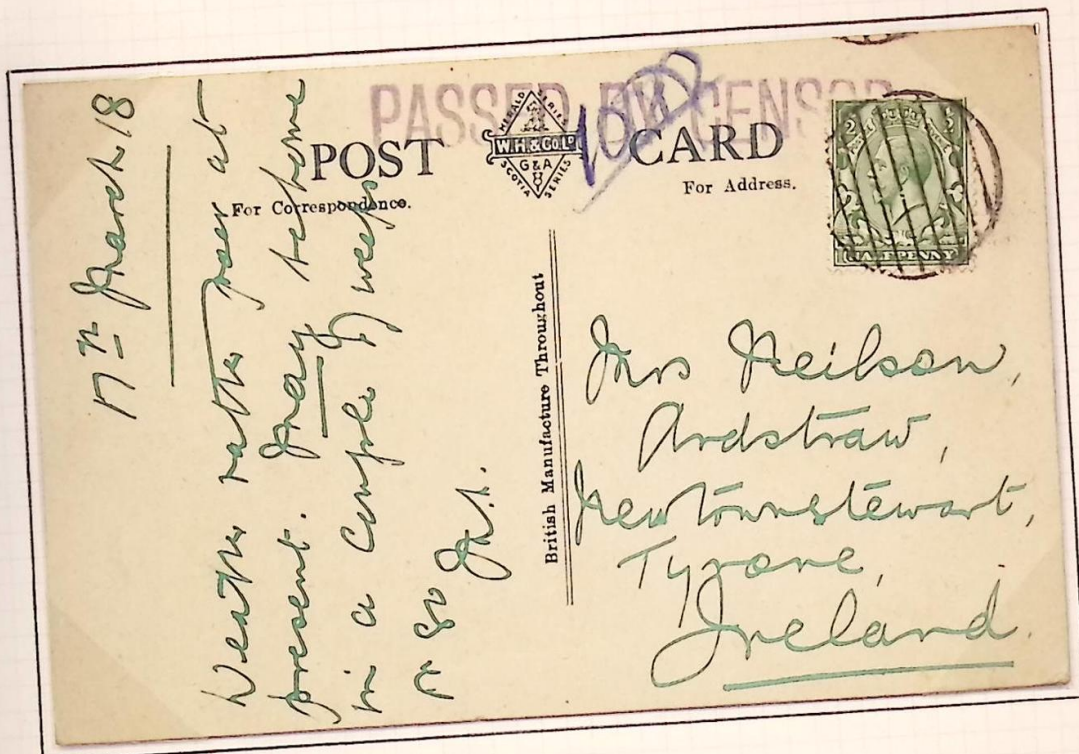 PASSED BY CENSOR
POST CARD
HERALD SERIES
W.H.& Co. Lᴰ
G & A
SCOTIA SERIES
For Correspondence.
For Address.
HALFPENNY
British Manufacture Throughout
17th March 18
Weather rather poor at
present. May be home
in a couple of weeks
or so
Mrs Neilson,
Ardstraw,
Newtownstewart,
Tyrone,
Ireland.